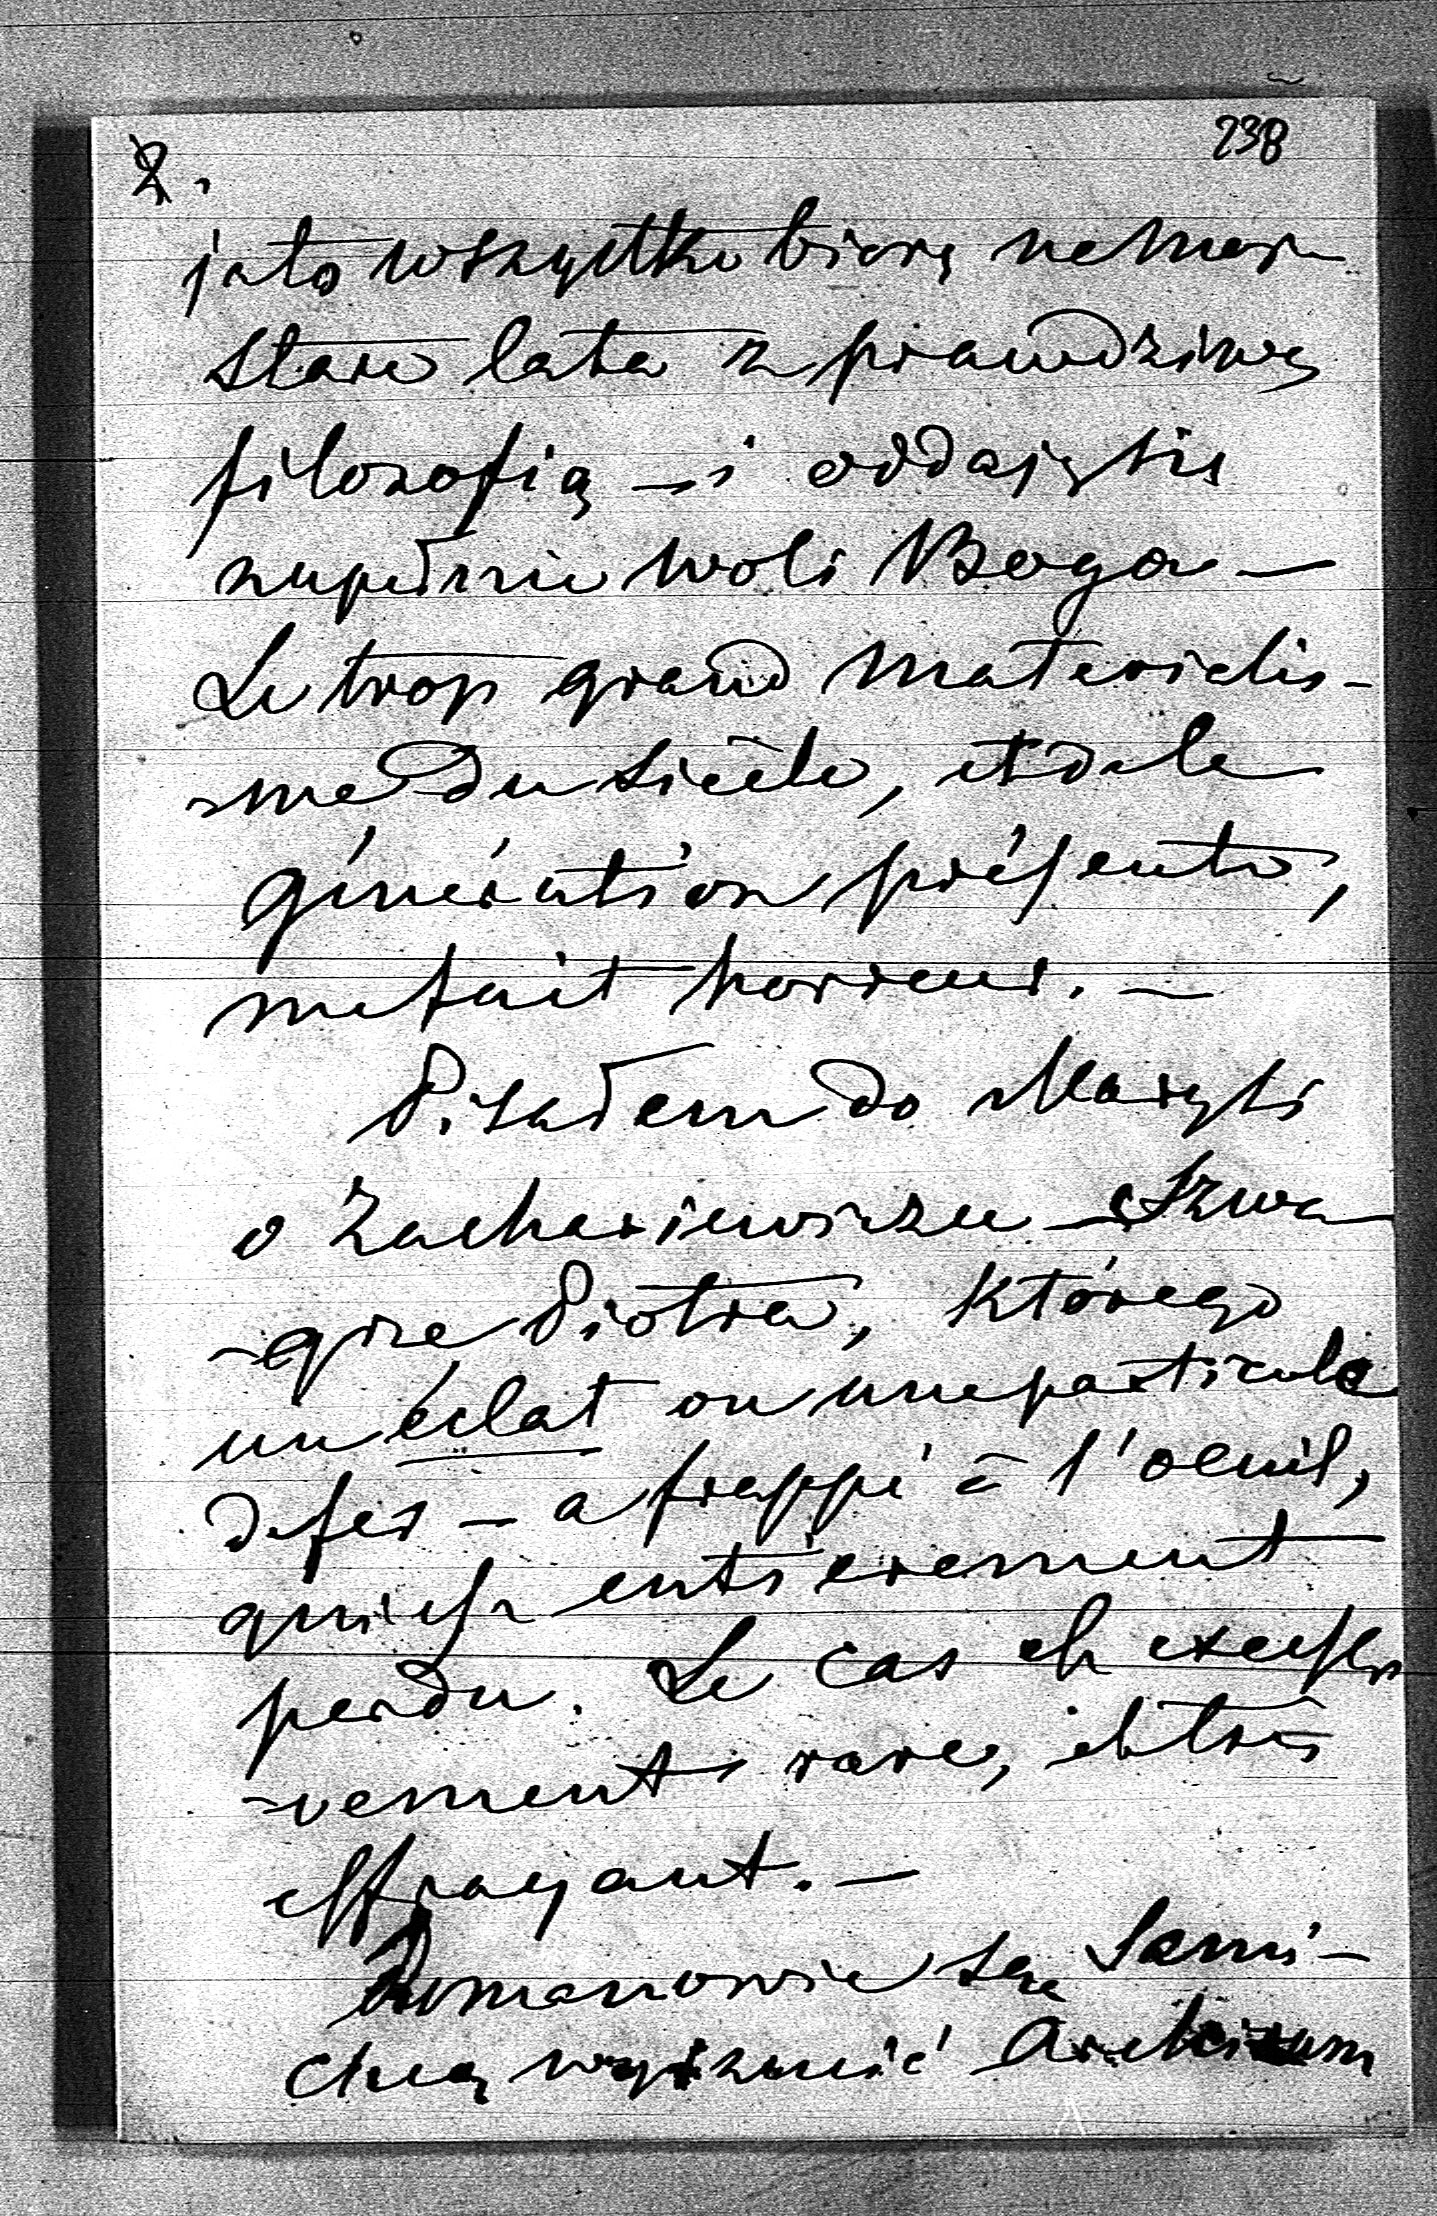 238
2.
ja to wszystko biorę na moje
stare lata z prawdziwą
filozofią – i oddaję się
zupełnie woli Boga –
Le trop grand materialis-
-me du siècle, et de la
génération présente,
me fait horreur. –
Pisałem do Marysi
o Zachariewiczu – Szwa-
-grze Piotra, którego
un éclat ou une particule
de fer – a frappé à l'oeuil,
qui est entièrement
perdu. Le cas est excessi-
-vement rare, et très
effrayant. –
Romanowie są Sami –
chcą